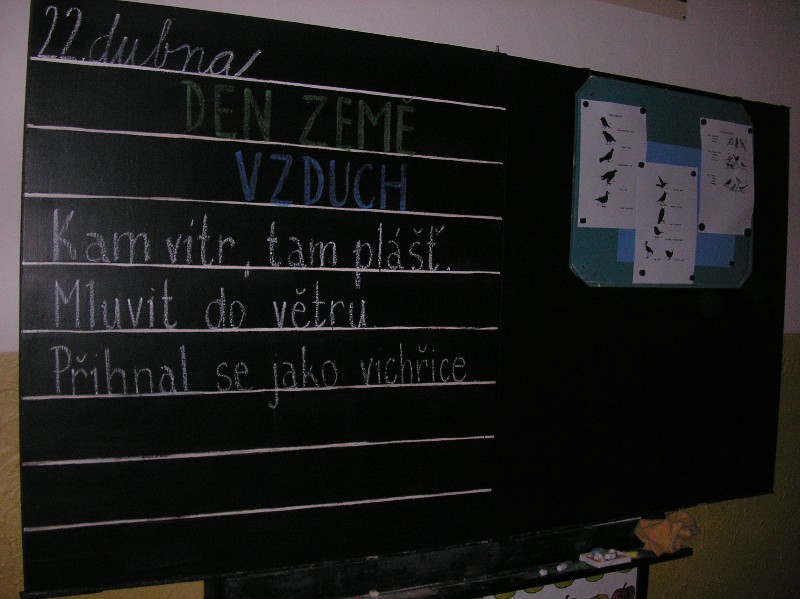 22. dubna
DEN ZEMĚ
VZDUCH
Kam vítr, tam plášť.
Mluvit do větru
Přihnal se jako vichřice